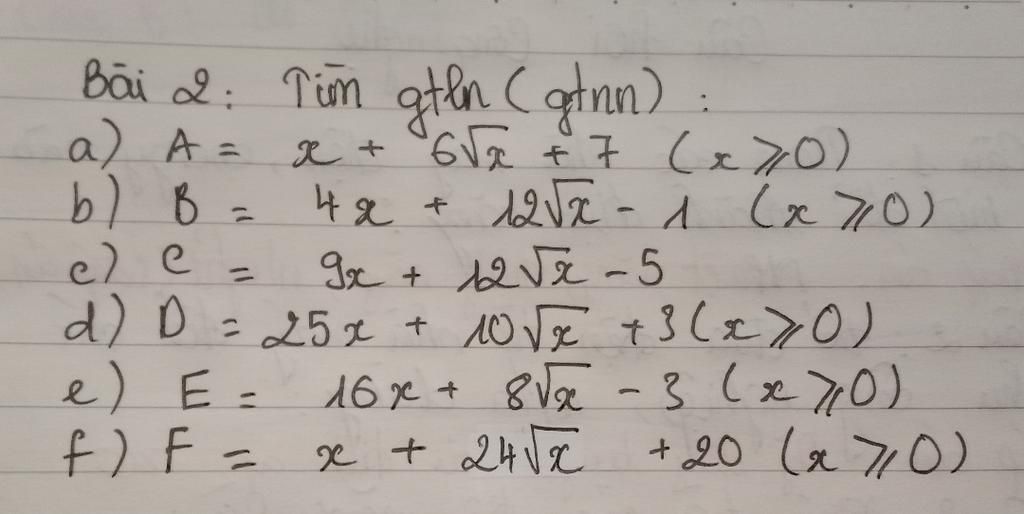 Bài 2: Tìm gtln (gtnn):
a) A = x + 6√x + 7 (x ⩾ 0)
b) B = 4x + 12√x - 1 (x ⩾ 0)
c) C = 9x + 12√x - 5
d) D = 25x + 10√x + 3 (x ⩾ 0)
e) E = 16x + 8√x - 3 (x ⩾ 0)
f) F = x + 24√x + 20 (x ⩾ 0)